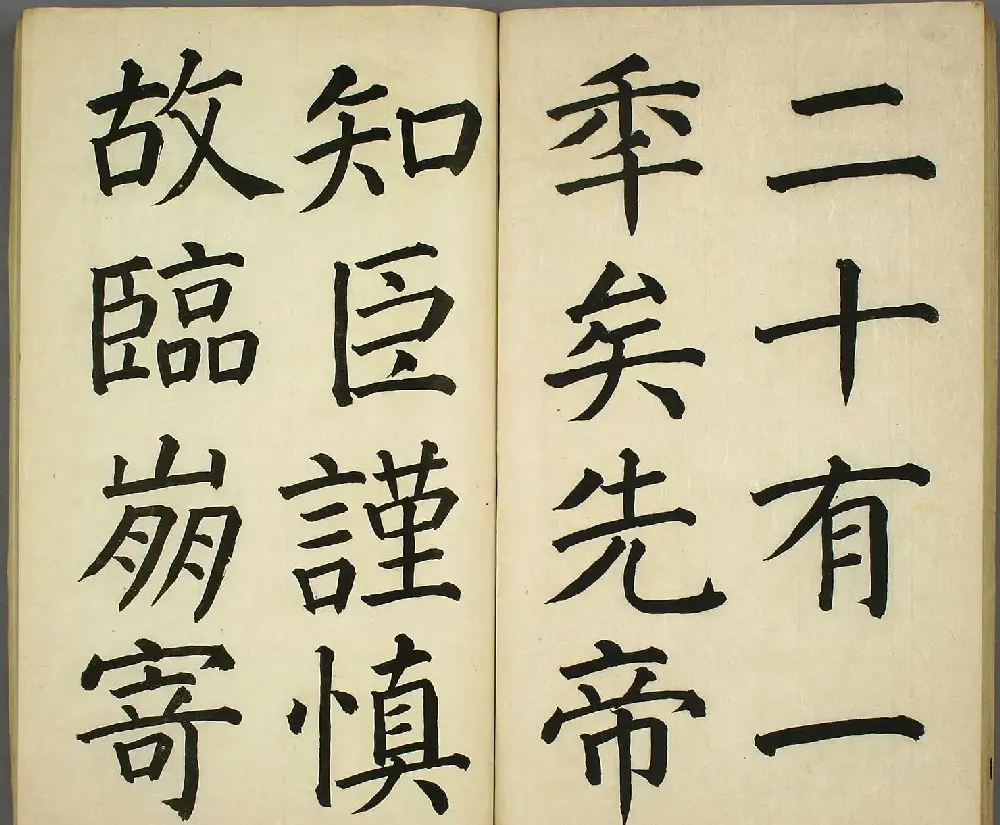 二十有一
秊矣先帝
知臣謹慎
故臨崩寄